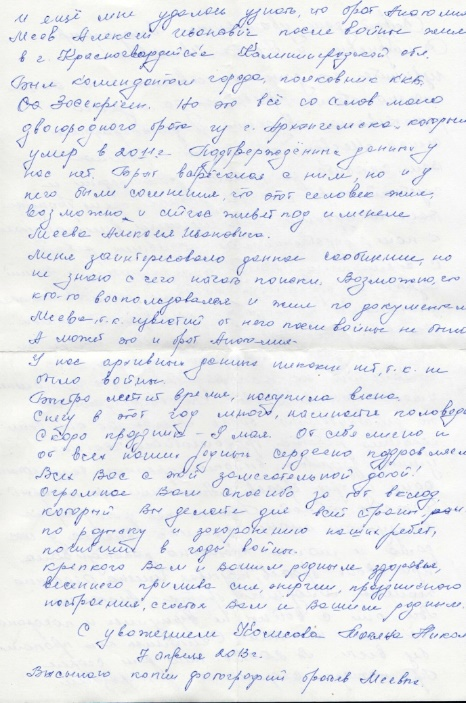 И ещё мне удалось узнать, что брат Анатолия
Алексей Иванович после войны жил
в г. Красногвардейске Калининградской обл.
Был комендантом города, полковник КГБ,
Он Засекречен. Но это всё со слов моего
двоюродного брата из г. Архангельска, который
умер в 2011г. Подтверждённых данных у
нас нет. Брат с ним, но и у
него были сомнения, что этот человек жил,
возможно и сейчас живёт под именем
Алексея Ивановича.
Меня заинтересовало данное сообщение, но
не знаю с чего начать поиски. Возможно, что
кто-то воспользовался и жил по документам
т.к. известий от него после войны не было
А может это и брат Анатолия.
У нас архивных данных никаких нет, т.к. не
было войны.
Быстро летит время, наступила весна.
Снегу в этот год много, начнётся половодье
Скоро праздник - 9 мая. От себя лично и
от всех наших родных сердечно поздравляем
Всех Вас с этой замечательной датой!
Огромное Вам спасибо за тот вклад,
который Вы делаете для всей страны
по розыску и захоронению наших ребят,
погибших в годы войны.
Крепкого Вам и Вашим родным здоровья,
весеннего прилива сил, энергии, праздничного
настроения, счастья Вам и Вашим родным.
С уважением
7 апреля 2013г.
Высылаю копии фотографий братьев